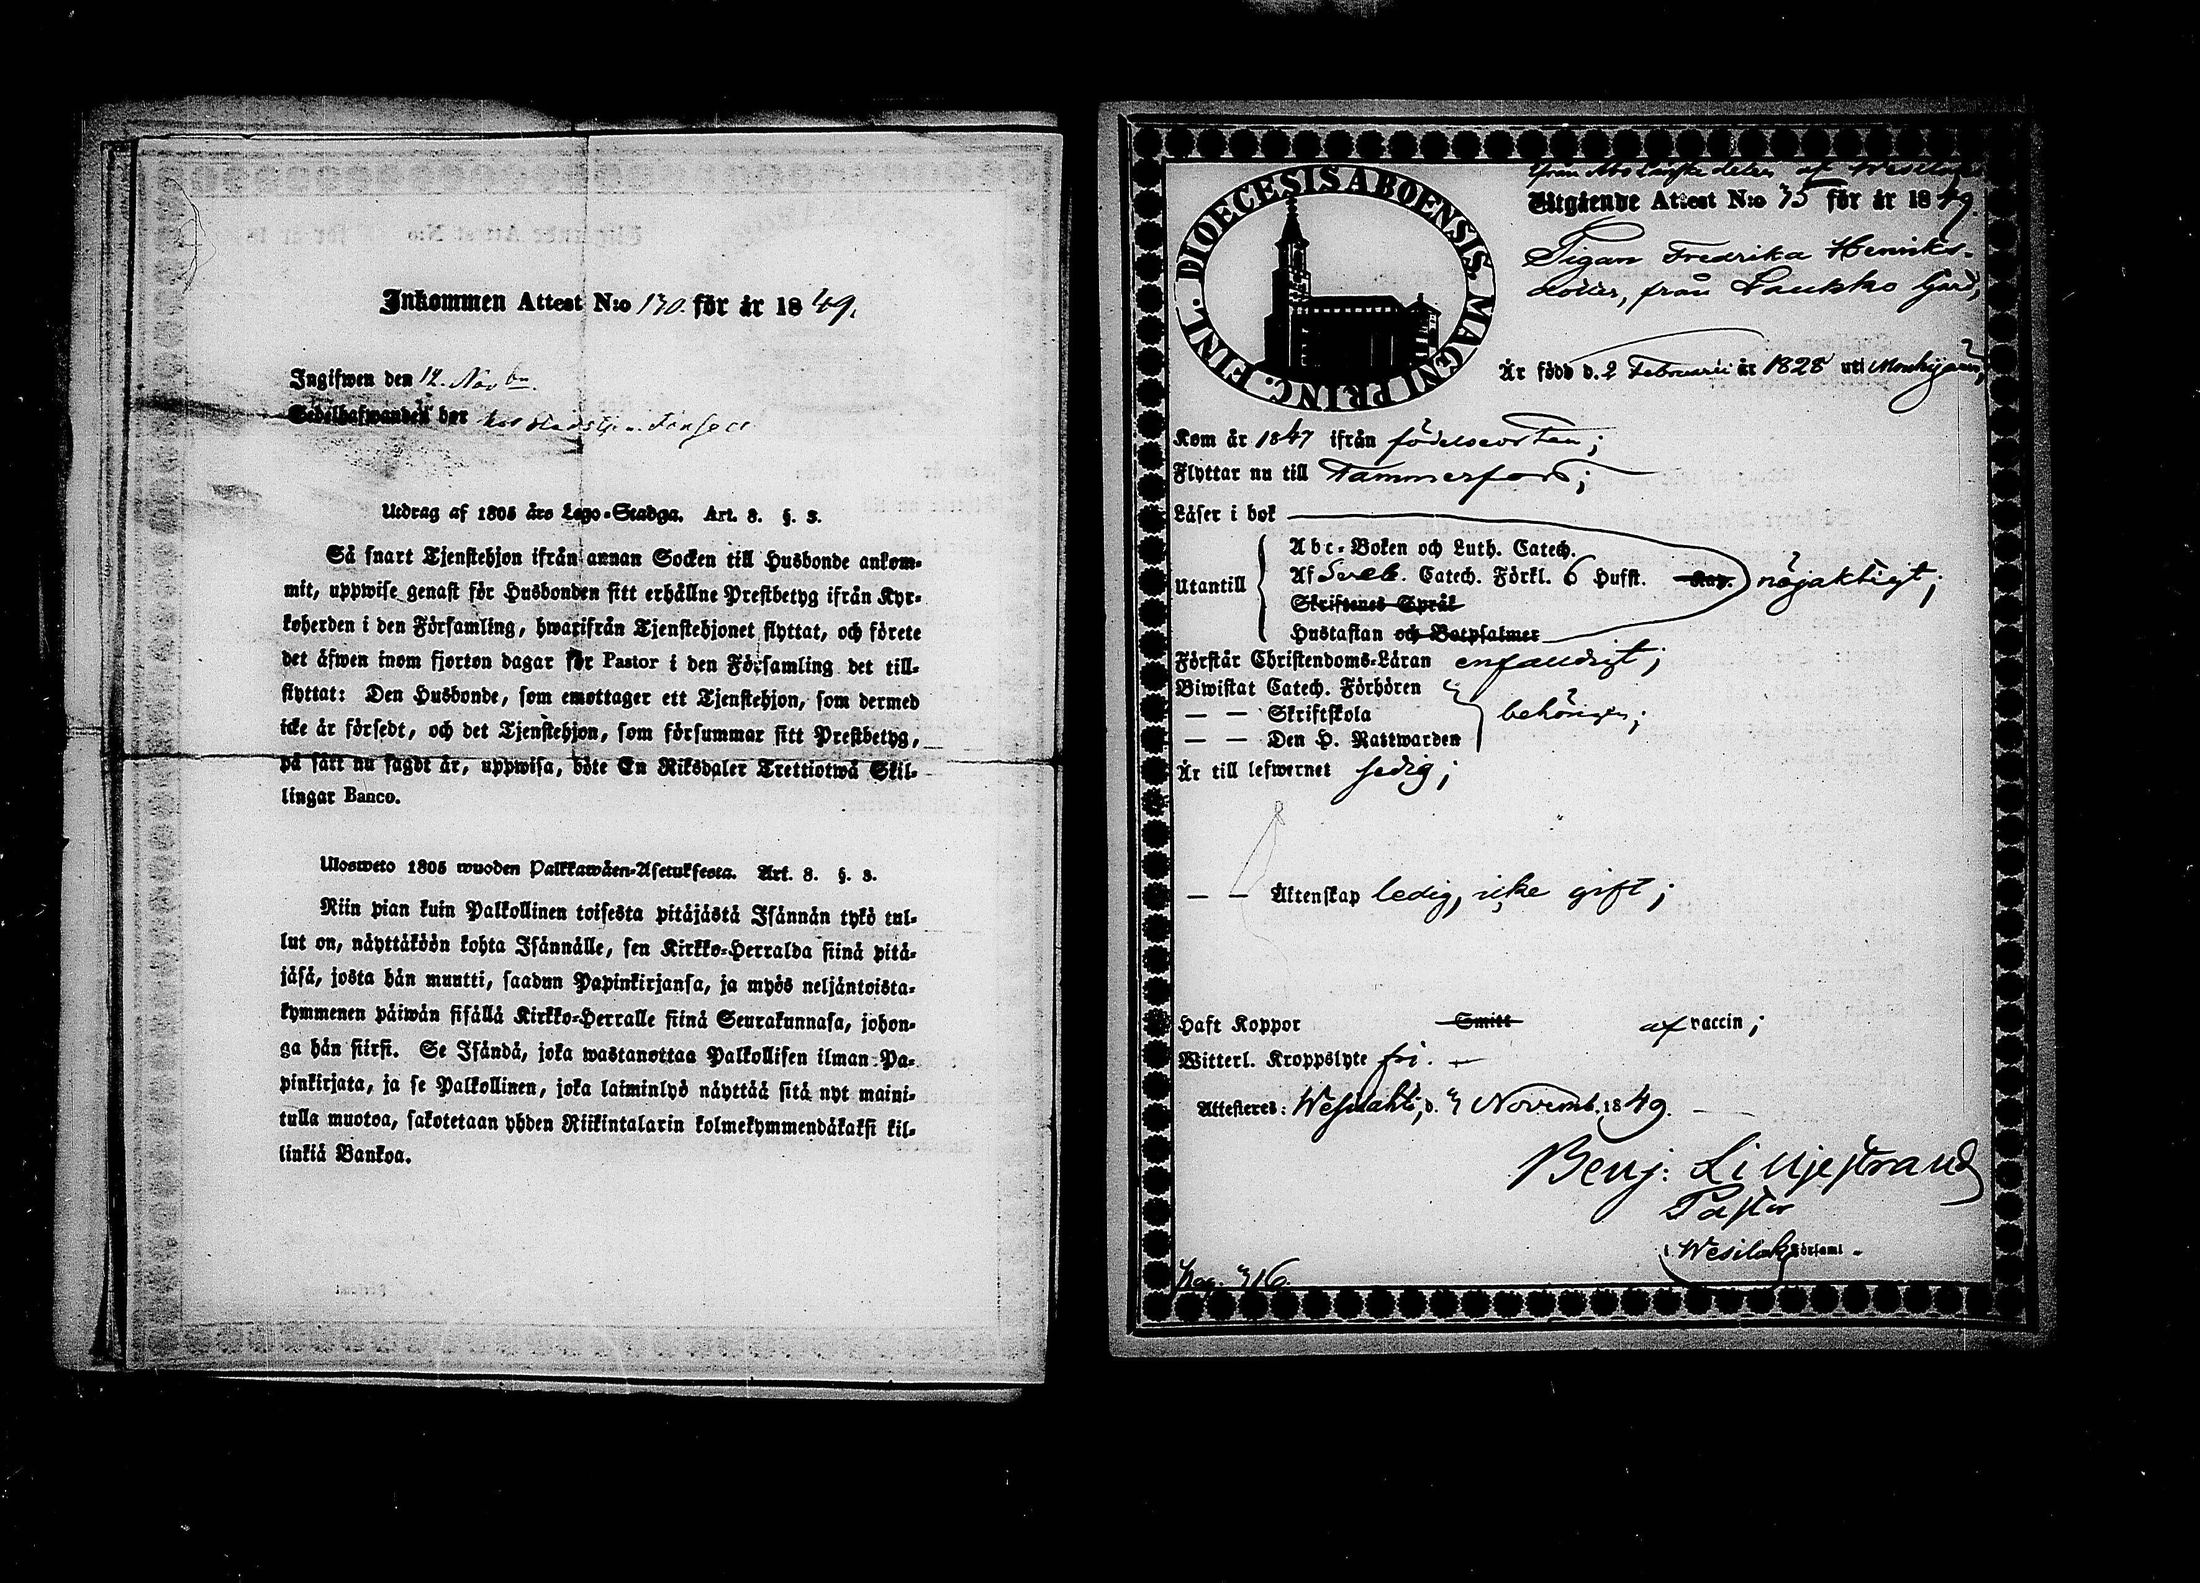 Inkommen Attest N:o 130. för år 1849.
Ingifwen den 14. Novbr.
Sedelhafwanden bor hos
Utdrag af 1805 års Lego-Stadga. Art. 8. §. 3.
Så snart Tjenstehjon ifrån annan Socken till Husbonde ankom-
mit, uppwise genast för Husbonden sitt erhållne Prestbetyg ifrån Kyr-
koherden i den Församling, hwarifrån Tjenstehjonet flyttat, och förete
det äfwen inom fjorton dagar för Pastor i den Församling det till-
flyttat: Den Husbonde, som emottager ett Tjenstehjon, som dermed
icke är försedt, och det Tjenstehjon, som försummar sitt Prestbetyg,
på sätt nu sagdt är, uppwisa, böte En Riksdaler Trettiotwå Skil-
lingar Banco.
Ulosweto 1805 wuoden Palkkawäen-Asetuksesta. Art. 8. §. 3.
Niin pian kuin Palkollinen toisesta pitäjästä Isännän tykö tul-
lut on, näyttäköön kohta Isännälle, sen Kirkko-Herralda siinä pitä-
jäsä, josta hän muutti, saadun Papinkirjansa, ja myös neljäntoista-
kymmenen päiwän sisällä Kirkko-Herralle siinä Seurakunnasa, johon-
ga hän siirsi. Se Isändä, joka wastanottaa Palkollisen ilman Pa-
pinkirjata, ja se Palkollinen, joka laiminlyö näyttää sitä nyt maini-
tulla muotoa, sakotetaan yhden Riikintalarin kolmekymmendäkaksi kil-
linkiä Bankoa.
DIOECESIS ABOENSIS. MAGNI PRINC. FINL.
Utgående Attest N:o 35 för år 1849.
Pigan Fredrika Henriks-
dotter, från Laukko Gård,
Är född d. 2 Februarii år 1828 uti Mouhijärvi,
Kom år 1847 ifrån födelseorten;
Flyttar nu till Tammerfors;
Läser i bok
Utantill
Abc-Boken och Luth. Catech.
Af Sveb. Catech. Förkl. 6 Hufst. Kap. nöjaktigt;
Skriftenes Språk
Hustaflan och Botpsalmer
Förstår Christendoms-Läran enfaldigt;
Biwistat Catech. Förhören
— — Skriftskola behörigen;
— — Den H. Nattwarden
Är till lefwernet sedig;
— — Äktenskap ledig, icke gift;
Haft Koppor Smitt af vaccin;
Witterl. Kroppslyte fri. —
Attesteres: Wesilahti, d. 7 Novemb. 1849.
Benj: Lilljestrand
Pastor
i Wesilaks Församl.
pag. 716.